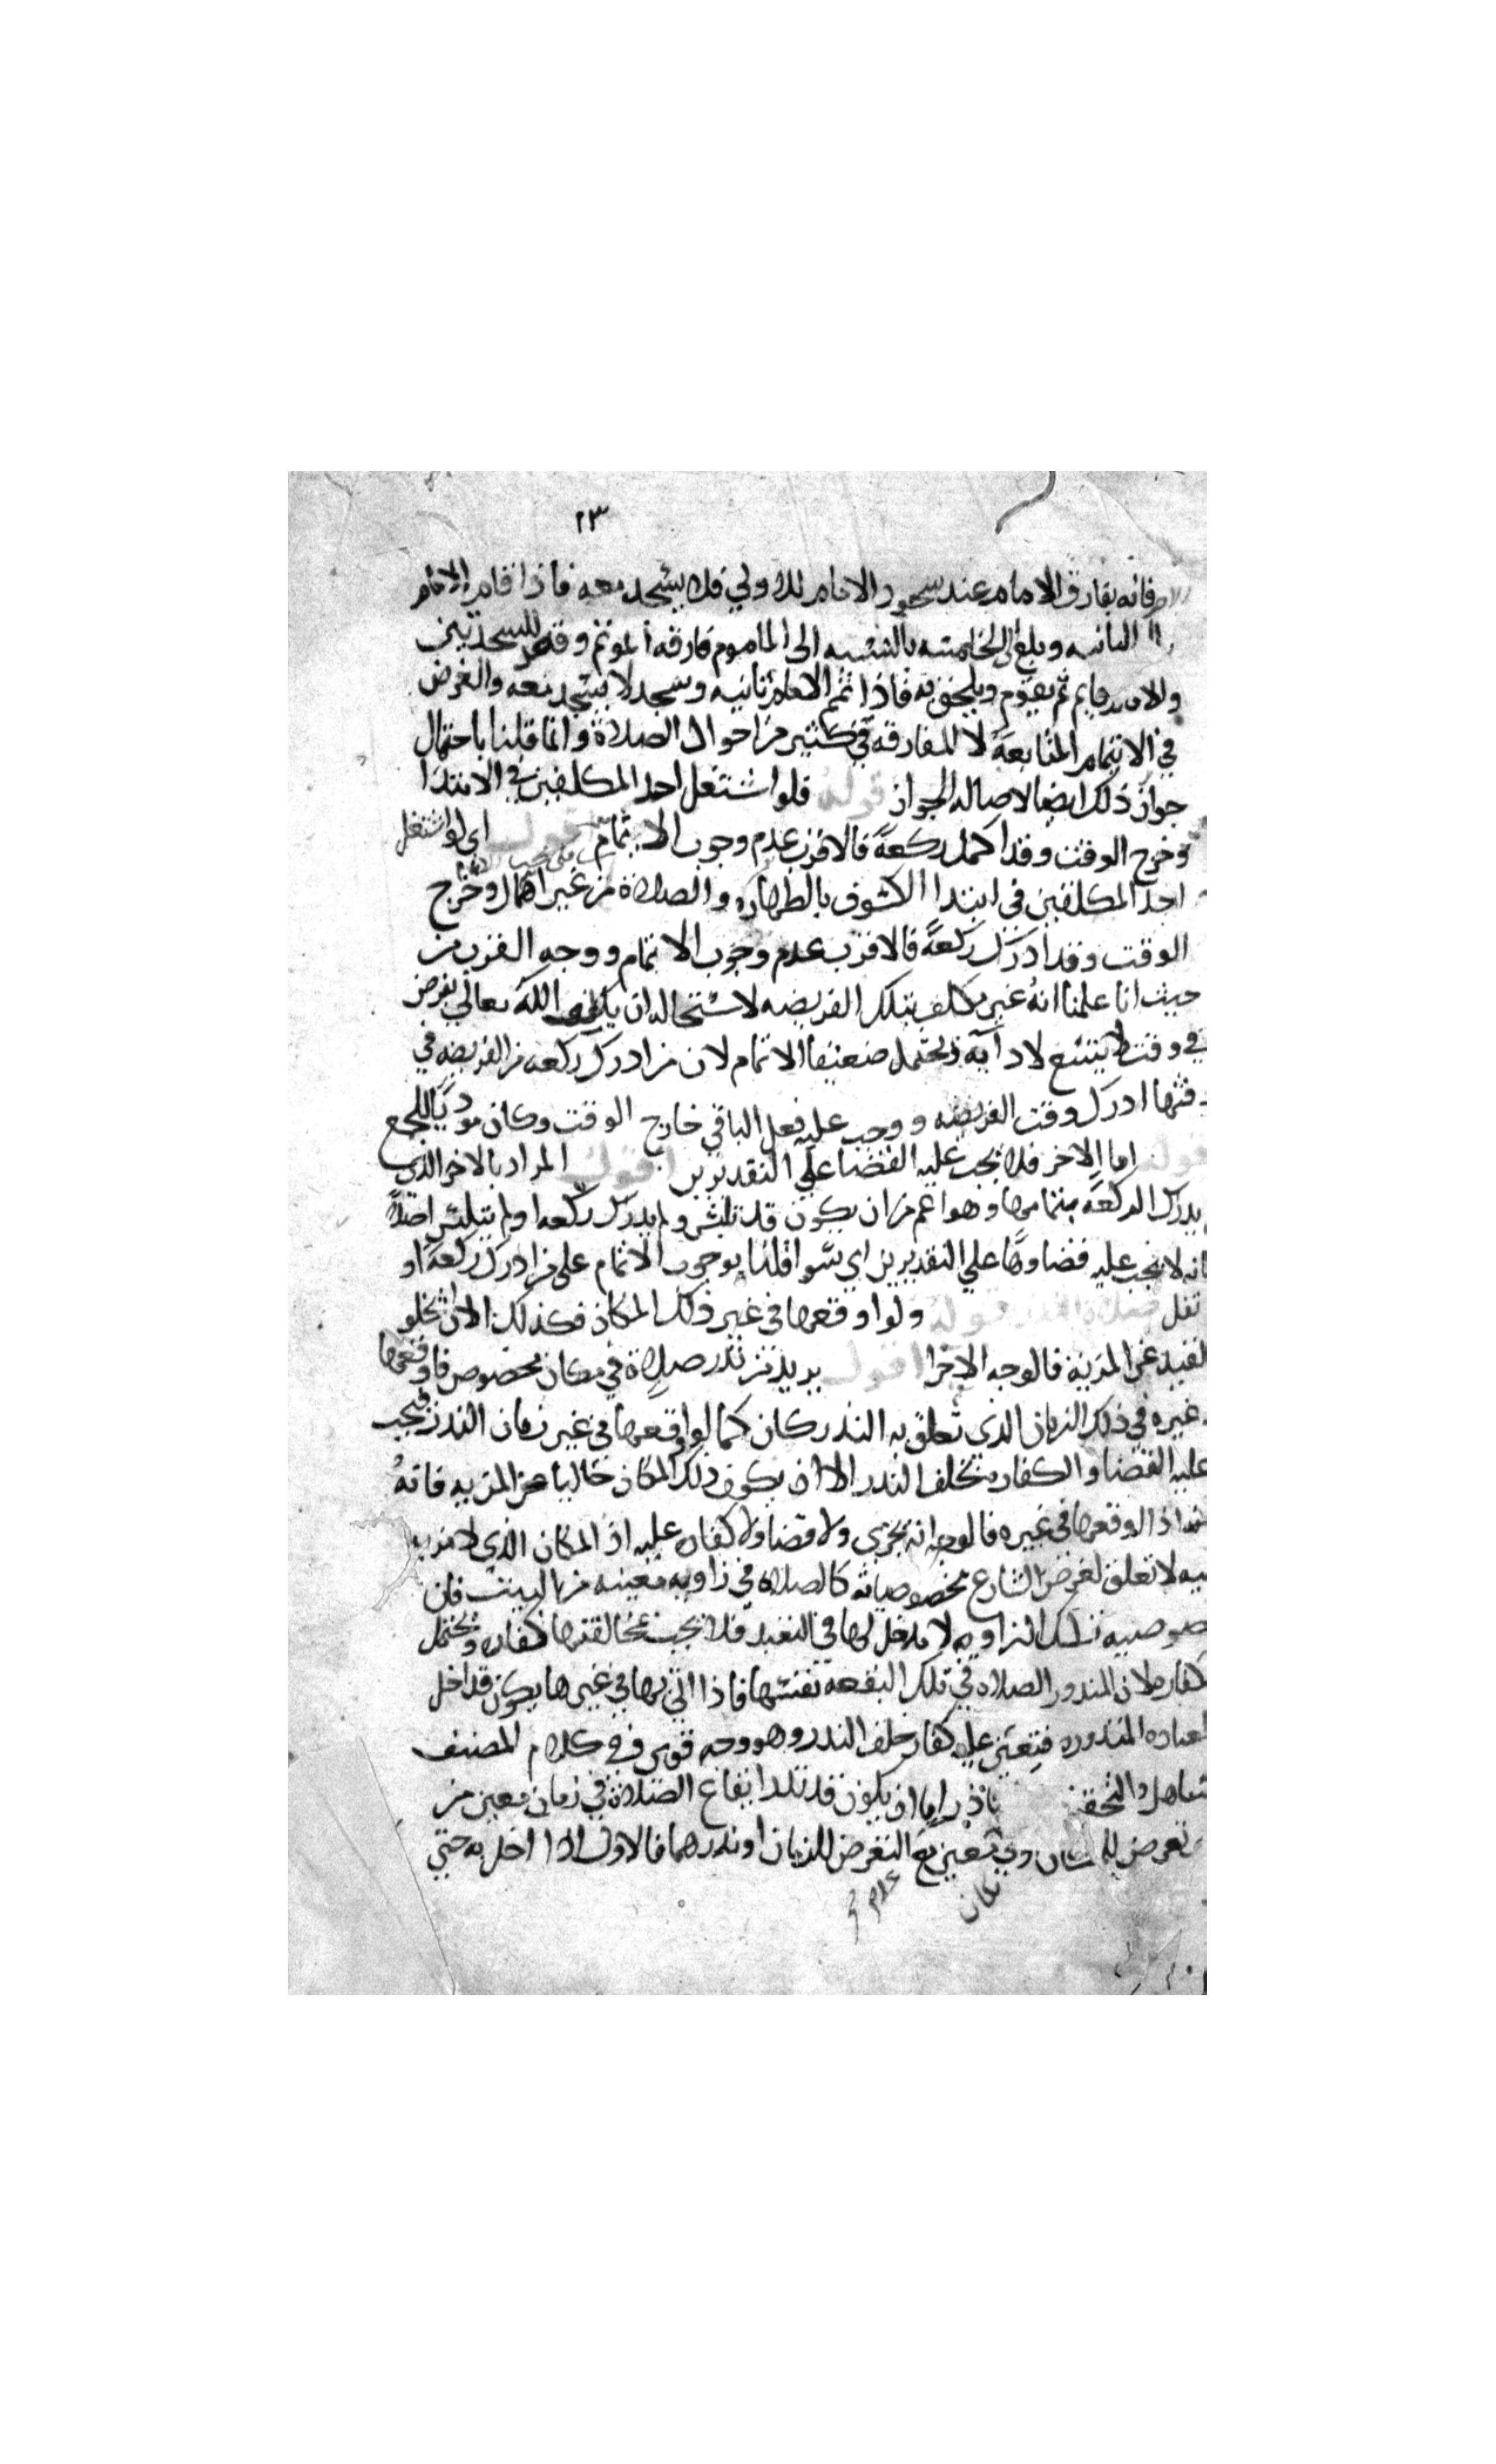 ٢٣
فانه يفارق الامام عند سجود الامام للاولي فلا يسجد معه فاذا قام الامام
الثانيه وبلغ الخامسه بالنسبه الى الماموم فارقه الموتم وقعد للسجدتين
والامام قايم ثم يقوم ويلحق به فاذا تمم الامام ثانيه وسجد لا يسجد معه والغرض
في الائتمام المتابعة لا المفارقه في كثير من احوال الصلاة وانما قلنا باحتمال
جواز ذلك ايضا لاصاله الجواز قوله فلو اشتغل احد المكلفين في الابتدا
وخرج الوقت وقد اكمل ركعة فالاقرب عدم وجوب الاتمام اقول اي لو اشتغل
احد المكلفين في ابتدا الكسوف بالطهاره والصلاة من غير اهمال وخرج
الوقت وقد ادرك ركعة فالاقرب عدم وجوب الاتمام ووجه القرب من
حيث انا علمنا انه غير مكلف بتلك الفريضه لاستحاله ان يكلف الله تعالى بفرض
في وقت لا يتسع لادآيه ويحتمل ضعيفا الاتمام لان من ادرك ركعه من الفريضه في
وقتها ادرك وقت الفريضه ووجب عليه فعل الباقي خارج الوقت وكان موديا للجميع
قوله اما الاخر فلا يجب عليه القضا علي التقديرين اقول المراد بالاخر الذي
يدرك الركعه بتمامها وهو اعم من ان يكون قد تلبس ولم يدرك ركعه او لم يتلبس اصلا
فانه لا يجب عليه قضاوها علي التقديرين اي سوا قلنا بوجوب الاتمام على من ادرك ركعة او
نقل قوله ولو اوقعها في غير ذلك المكان فكذلك الا ان يخلو
القيد عن المزية فالوجه الاجزا اقول يريد من نذر صلاة في مكان مخصوص فاوقعها
غيره في ذلك الزمان الذي تعلق به النذر كان كما لو اوقعها في غير زمان النذر فيجب
عليه القضا والكفاره بخلف النذر الا ان يكون ذلك المكان خاليا عن المزيه فانه
اذا اوقعها في غيره فالوجه انه يجزى ولا قضا ولا كفاره عليه اذ المكان الذي لا مزيه
فيه لا تعلق لغرض الشارع بخصوصياته كالصلاه في زاويه معينه من البيت فان
خصوصيه تلك الزاويه لا مدخل لها في التعبد فلا يجب بمخالفتها كفاره ويحتمل
الكفاره لان المنذور الصلاه في تلك البقعه نفسها فاذا اتي بها في غيرها يكون قد اخل
العباده المنذوره فيتعين عليه كفاره خلف النذر وهو وجه قوى وفي كلام المصنف
تساهل والتحقيق ناذر اما ان يكون قد نذر ايقاع الصلاة في زمان معين من
تعرض للمكان وفي تعيين مع التعرض للزمان او نذرهما فالاول اذا اخل به حتي
مكان